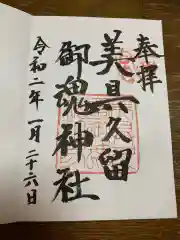 奉拝
美具久留
御魂神社
令和二年一月二十六日